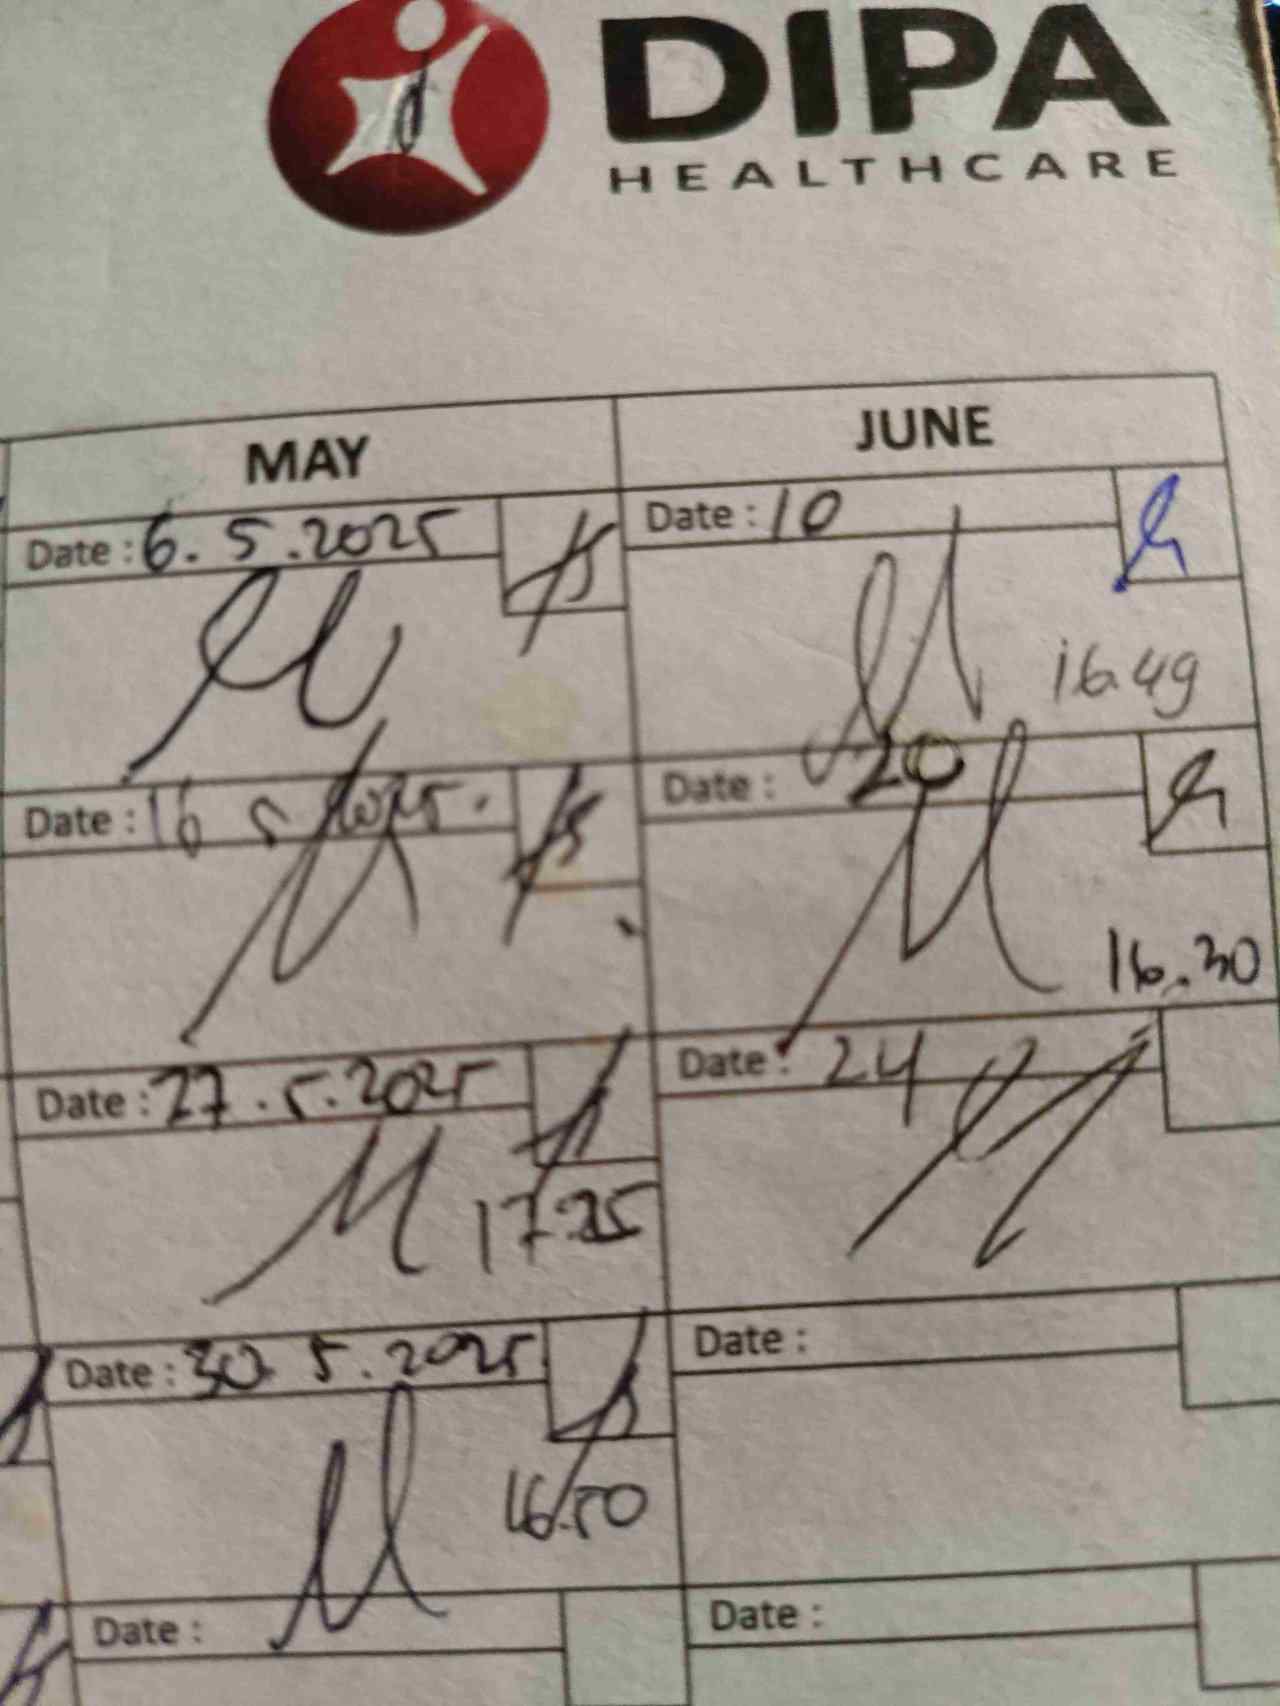 DIPA
HEALTHCARE
MAY
Date : 6.5.2025
Date : 16 5.2025.
Date : 27.5.2025
17.25
Date : 30.5.2025
16.50
Date :
JUNE
Date : 10
16.49
Date : 20
16.30
Date : 24
Date :
Date :